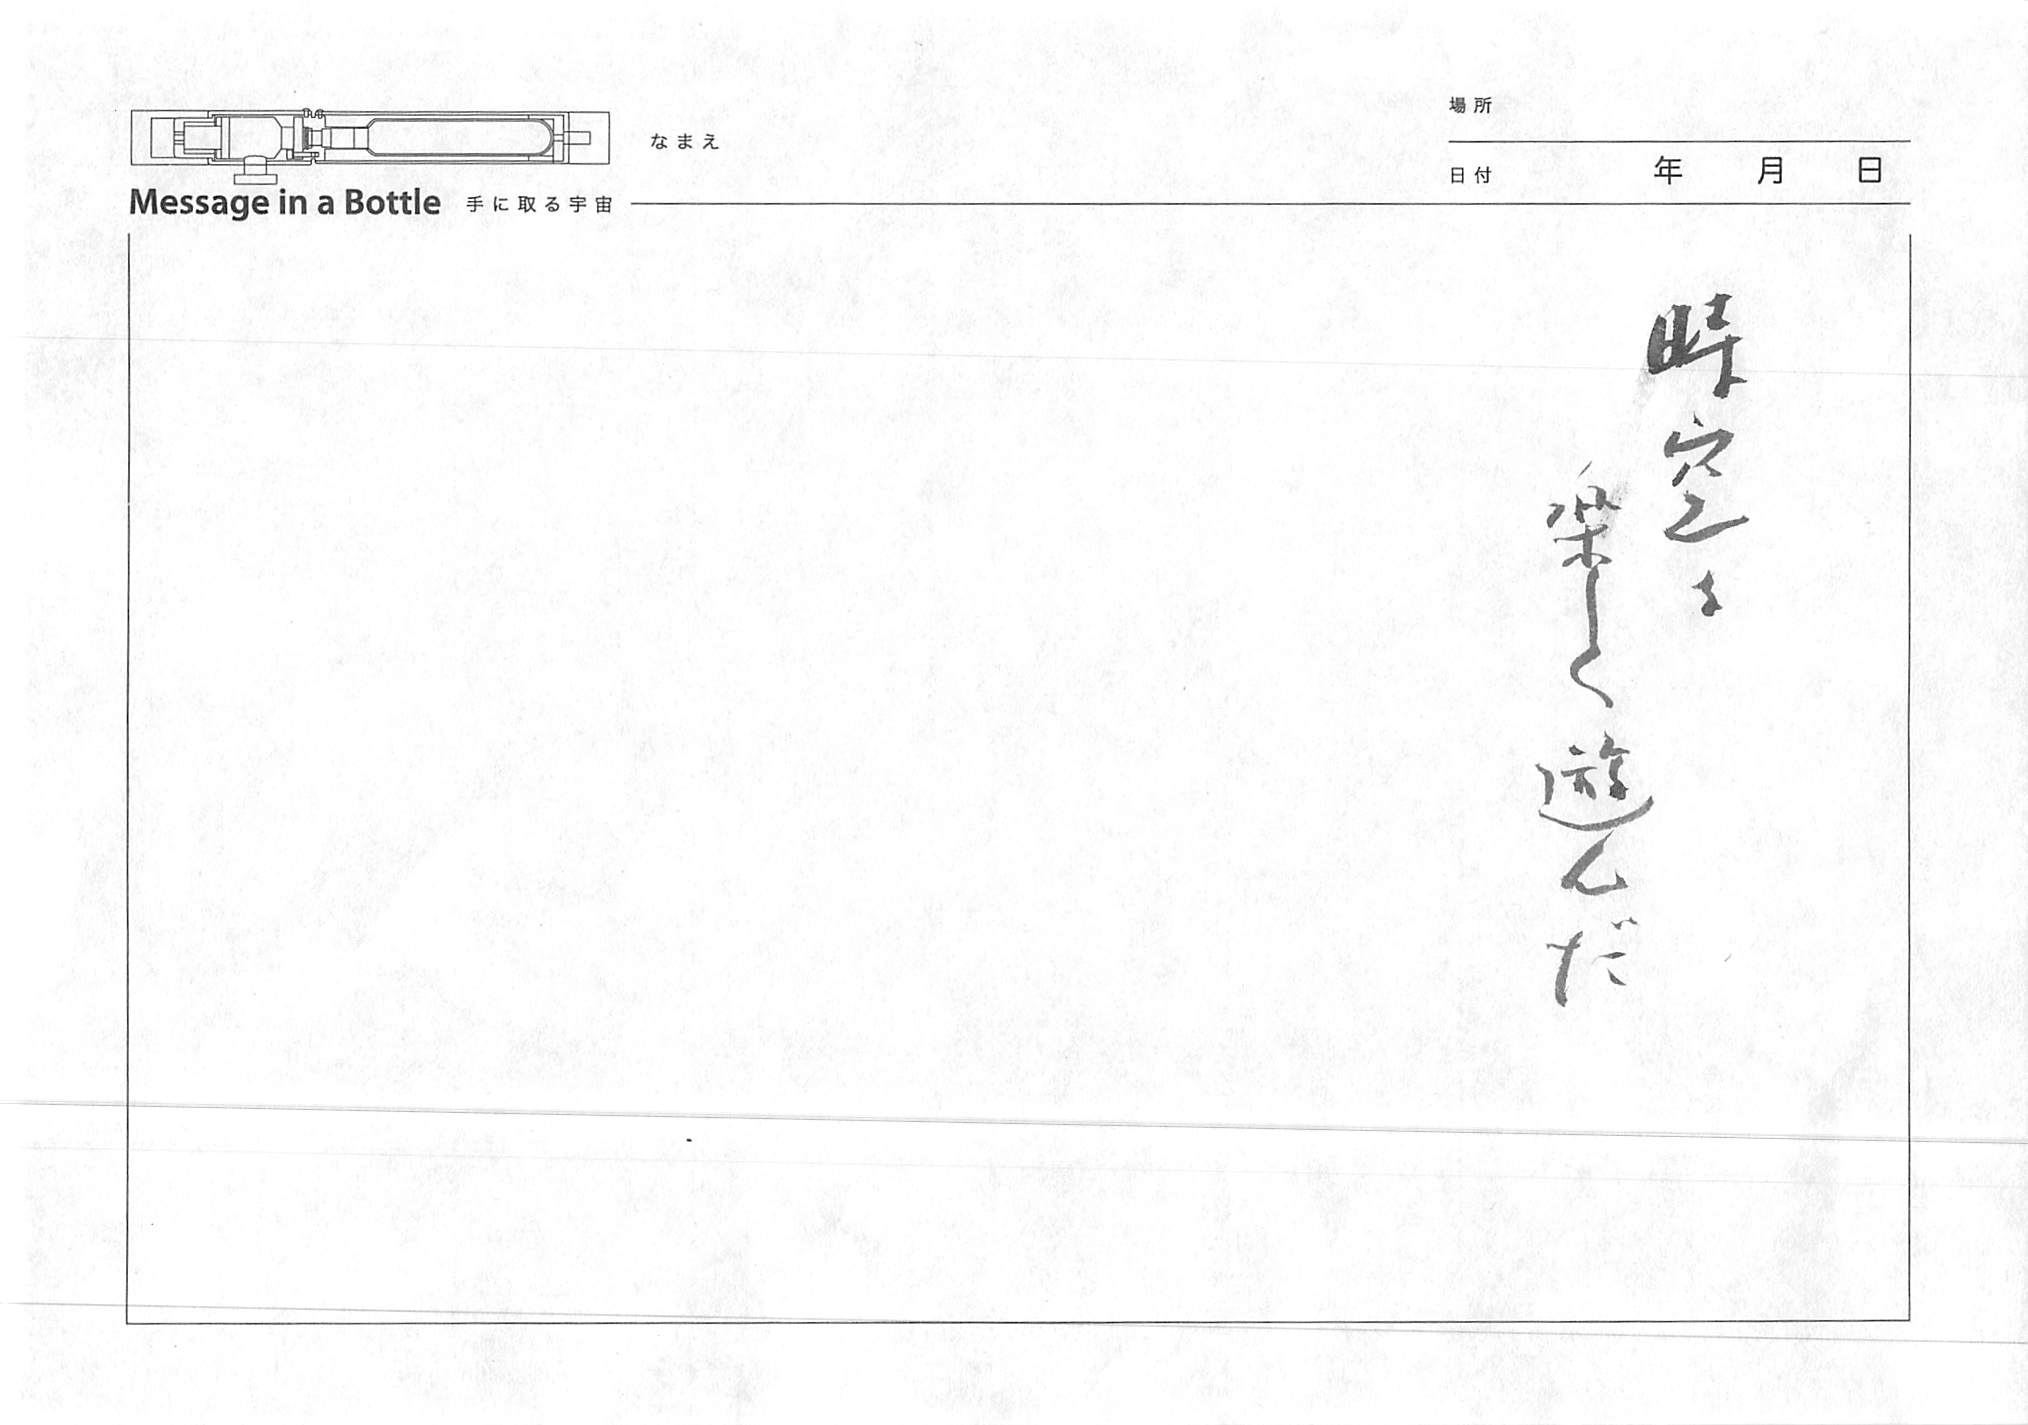 場所
なまえ
日付 年 月 日
Message in a Bottle 手に取る宇宙
時空を
楽しく遊んだ